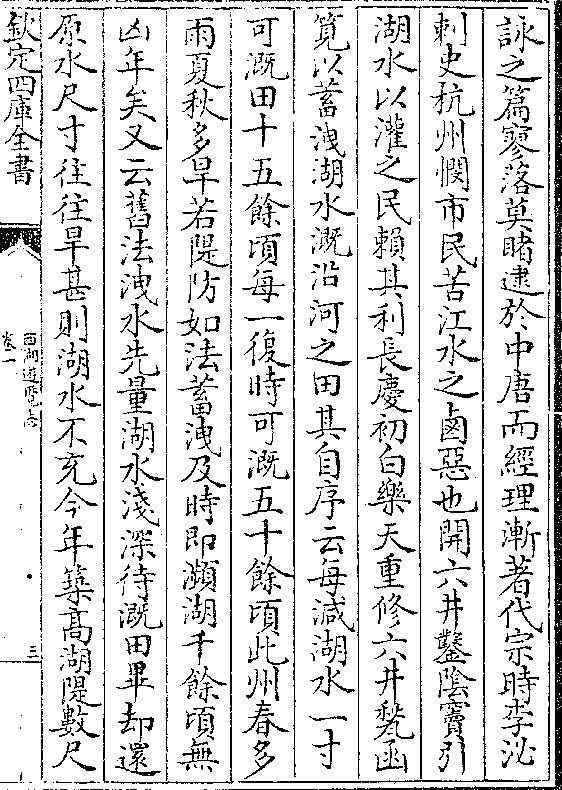 詠之篇寥落莫睹逮於中唐而經理漸著代宗時李泌
刺史杭州憫市民苦江水之鹵惡也開六井鑿陰竇引
湖水以灌之民賴其利長慶初白樂天重修六井甃函
筧以蓄洩湖水溉沿河之田其自序云每減湖水一寸
可溉田十五餘頃每一復時可溉五十餘頃此州春多
雨夏秋多旱若隄防如法蓄洩及時即瀕湖千餘頃無
凶年矣又云舊法洩水先量湖水淺深待溉田畢却還
原水尺寸往往旱甚則湖水不充今年築髙湖隄數尺
欽定四庫全書
西湖遊覽志
卷一
三